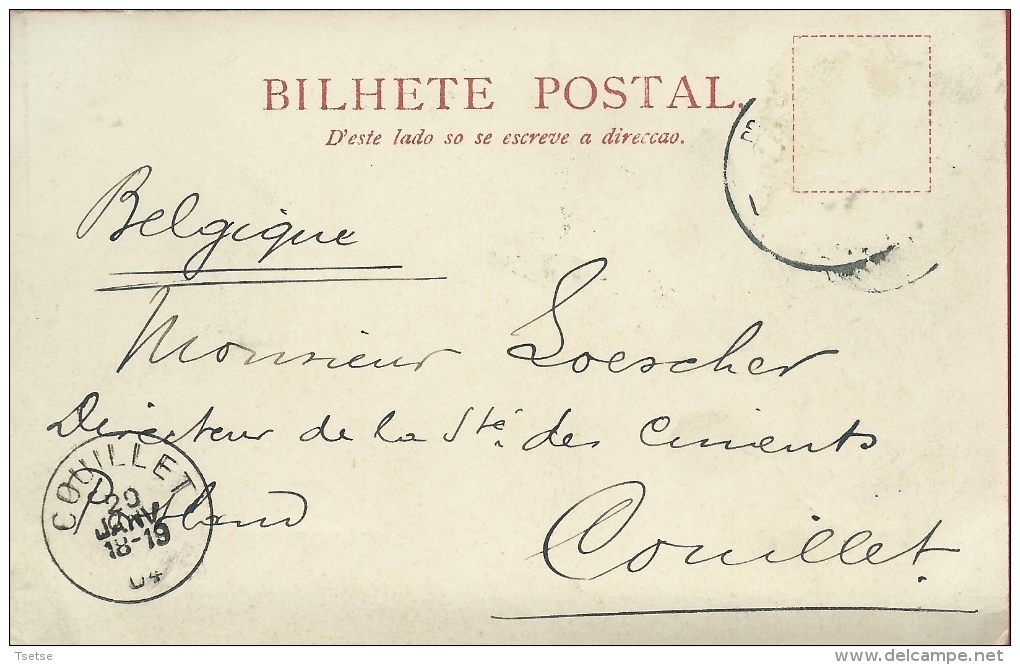 BILHETE POSTAL.
D'este lado so se escreve a direccao.
Belgique
Monsieur Loescher
Directeur de la Sté. des Ciments
Portland
Couillet.
COUILLET
29
JANV
18-19
04
Tsetse
www.delcampe.net